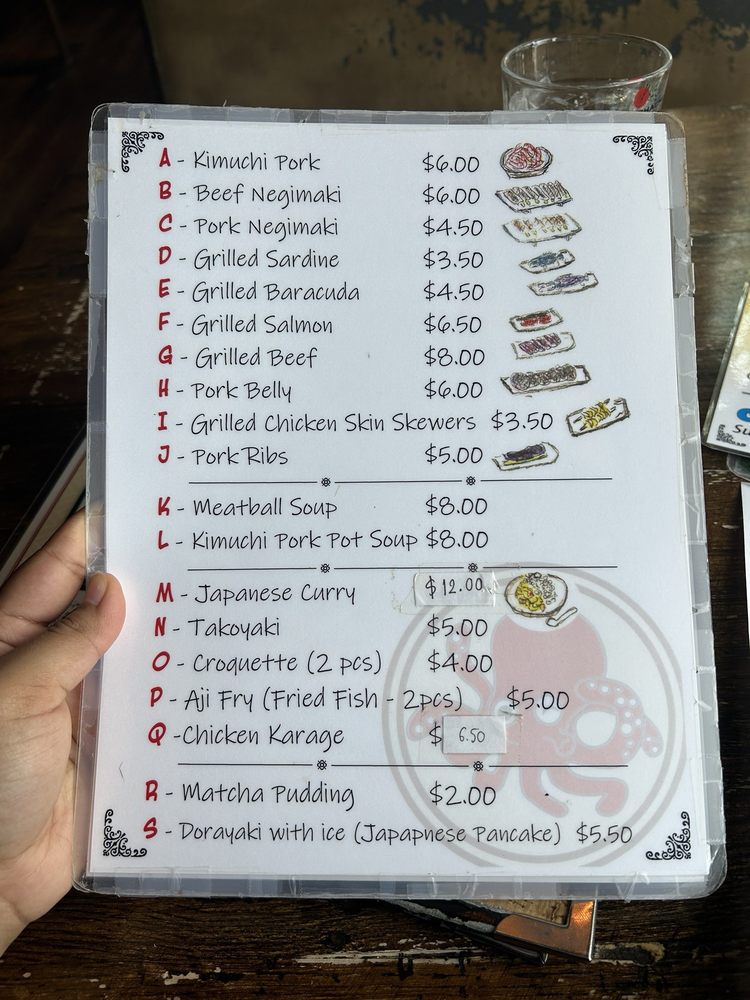 A - Kimuchi Pork $6.00
B - Beef Negimaki $6.00
C - Pork Negimaki $4.50
D - Grilled Sardine $3.50
E - Grilled Baracuda $4.50
F - Grilled Salmon $6.50
G - Grilled Beef $8.00
H - Pork Belly $6.00
I - Grilled Chicken Skin Skewers $3.50
J - Pork Ribs $5.00
K - Meatball Soup $8.00
L - Kimuchi Pork Pot Soup $8.00
M - Japanese Curry $12.00
N - Takoyaki $5.00
O - Croquette (2 pcs) $4.00
P - Aji Fry (Fried Fish - 2pcs) $5.00
Q - Chicken Karage $ 6.50
R - Matcha Pudding $2.00
S - Dorayaki with ice (Japapnese Pancake) $5.50